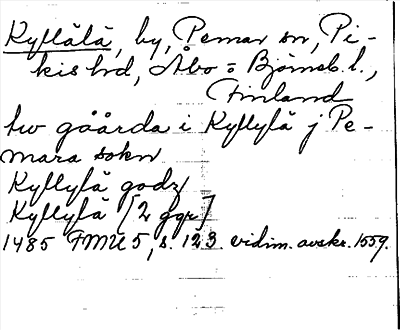 Kyflälä, by, Pemar sn, Pi-
kis hd, Åbo = Björneb. l.,
Finland
tw gåårda i Kyflylä j Pe-
mara sokn
Kyflylä godz
Kyflylä [2 ggr]
1485 FMU 5, s. 123 vidim. avskr. 1559.